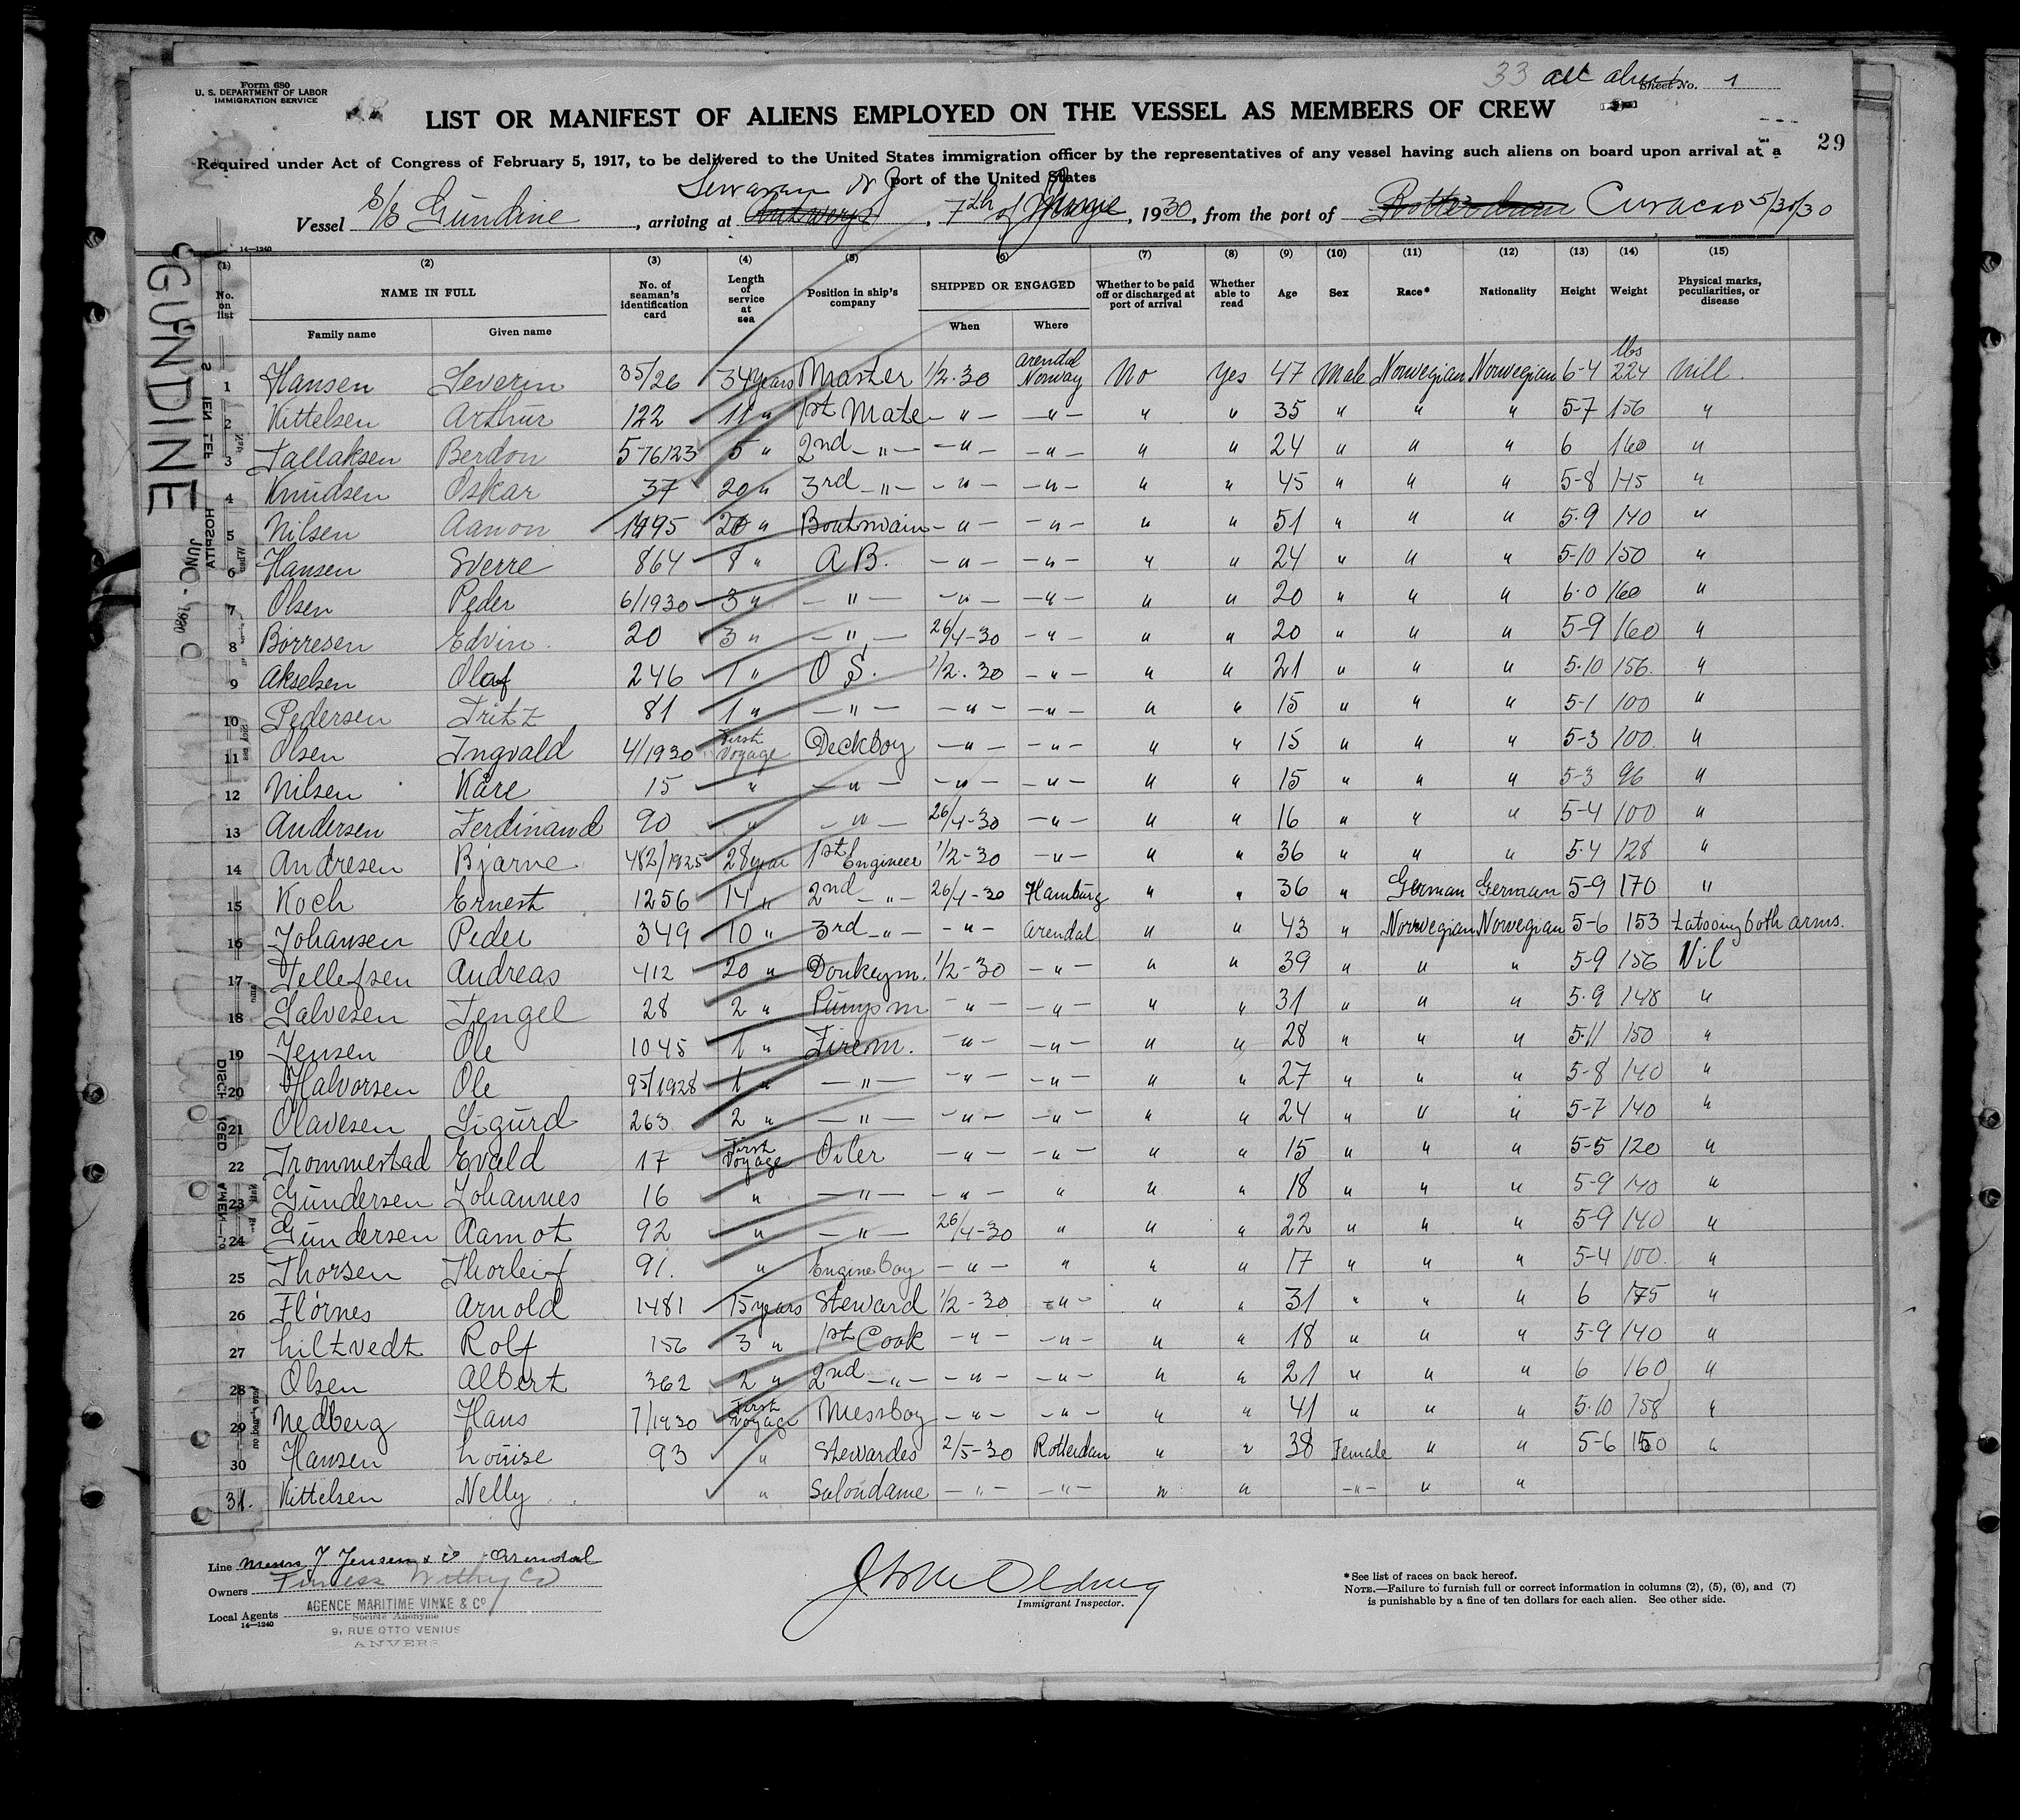 Form 680
U. S. DEPARTMENT OF LABOR
IMMIGRATION SERVICE
33 all aliens
Sheet No. 1
LIST OR MANIFEST OF ALIENS EMPLOYED ON THE VESSEL AS MEMBERS OF CREW
29
Required under Act of Congress of February 5, 1917, to be delivered to the United States immigration officer by the representatives of any vessel having such aliens on board upon arrival at a
port of the United States
Vessel S/S Gundine, arriving at Antwerp, 7th of June, 1930, from the port of Rotterdam Curacao 5/30/30
14—1240
(1) (2) (3) (4) (5) (6) (7) (8) (9) (10) (11) (12) (13) (14) (15)
No. on list NAME IN FULL Family name Given name No. of seaman's identification card Length of service at sea Position in ship's company SHIPPED OR ENGAGED When Where Whether to be paid off or discharged at port of arrival Whether able to read Age Sex Race* Nationality Height Weight Physical marks, peculiarities, or disease
GUNDINE
1 Hansen Severin 35/26 34 years Master 1/2-30 Arendal Norway No Yes 47 Male Norwegian Norwegian 6-4 224 lbs Nill.
2 Kittelsen Arthur 122 11 " 1st Mate -"- -"- " " 35 " " " 5-7 156 "
3 Tallaksen Berdon 576/23 5 " 2nd -"- -"- -"- " " 24 " " " 6 160 "
4 Knudsen Oskar 37 20 " 3rd -"- -"- -"- " " 45 " " " 5-8 145 "
5 Nilsen Aanon 1495 20 " Boatswain -"- -"- " " 51 " " " 5-9 140 "
6 Hansen Sverre 864 8 " A B. -"- -"- " " 24 " " " 5-10 150 "
7 Olsen Peder 6/1930 3 " -"- -"- -"- " " 20 " " " 6-0 160 "
8 Börresen Edvin 20 3 " -"- 26/4-30 -"- " " 20 " " " 5-9 160 "
9 Akselsen Olaf 246 1 " O S. 1/2-30 -"- " " 21 " " " 5-10 156 "
10 Pedersen Fritz 81 1 " -"- -"- -"- " " 15 " " " 5-1 100 "
11 Olsen Ingvald 4/1930 First Voyage Deckboy -"- -"- " " 15 " " " 5-3 100 "
12 Nilsen Kåre 15 " -"- -"- -"- " " 15 " " " 5-3 96 "
13 Andersen Ferdinand 90 " -"- 26/4-30 -"- " " 16 " " " 5-4 100 "
14 Andresen Bjarne 482/1925 28 year 1st Engineer 1/2-30 -"- " " 36 " " " 5-4 128 "
15 Koch Ernest 1256 14 " 2nd -"- 26/4-30 Hamburg " " 36 " German German 5-9 170 "
16 Johansen Peder 349 10 " 3rd -"- -"- Arendal " " 43 " Norwegian Norwegian 5-6 153 tatooing both arms.
17 Tellefsen Andreas 412 20 " Donkeym. 1/2-30 -"- " " 39 " " " 5-9 156 Nil
18 Salvesen Tengel 28 2 " Pumpm -"- -"- " " 31 " " " 5-9 148 "
19 Jensen Ole 1045 1 " Firem. -"- -"- " " 28 " " " 5-11 150 "
20 Halvorsen Ole 95/1928 1 " -"- -"- -"- " " 27 " " " 5-8 140 "
21 Olavesen Sigurd 263 2 " -"- -"- -"- " " 24 " " " 5-7 140 "
22 Trommestad Evald 17 First Voyage Oiler -"- -"- " " 15 " " " 5-5 120 "
23 Gundersen Johannes 16 " -"- -"- " " " 18 " " " 5-9 140 "
24 Gundersen Aamot 92 " -"- 26/4-30 " " " 22 " " " 5-9 140 "
25 Thorsen Thorleif 91. " Engineboy -"- " " " 17 " " " 5-4 100 "
26 Flörnes Arnold 1481 15 years Steward 1/2-30 -"- " " 31 " " " 6 175 "
27 Liltvedt Rolf 156 3 " 1st Cook -"- -"- " " 18 " " " 5-9 140 "
28 Olsen Albert 362 2 " 2nd -"- -"- -"- " " 21 " " " 6 160 "
29 Nedberg Hans 7/1930 First Voyage Messboy -"- -"- " " 41 " " " 5-10 158 "
30 Hansen Louise 93 " Stewardes 2/5-30 Rotterdam " " 38 Female " " 5-6 150 "
31. Kittelsen Nelly " Salondame -"- -"- " " -"- " "
Line Messrs J Jensen & Co Arendal
Owners Furness Withy Co
Local Agents AGENCE MARITIME VINKE & Co
14—1240
Société Anonyme
9, RUE OTTO VENIUS
ANVERS
Immigrant Inspector.
*See list of races on back hereof.
NOTE.—Failure to furnish full or correct information in columns (2), (5), (6), and (7)
is punishable by a fine of ten dollars for each alien. See other side.